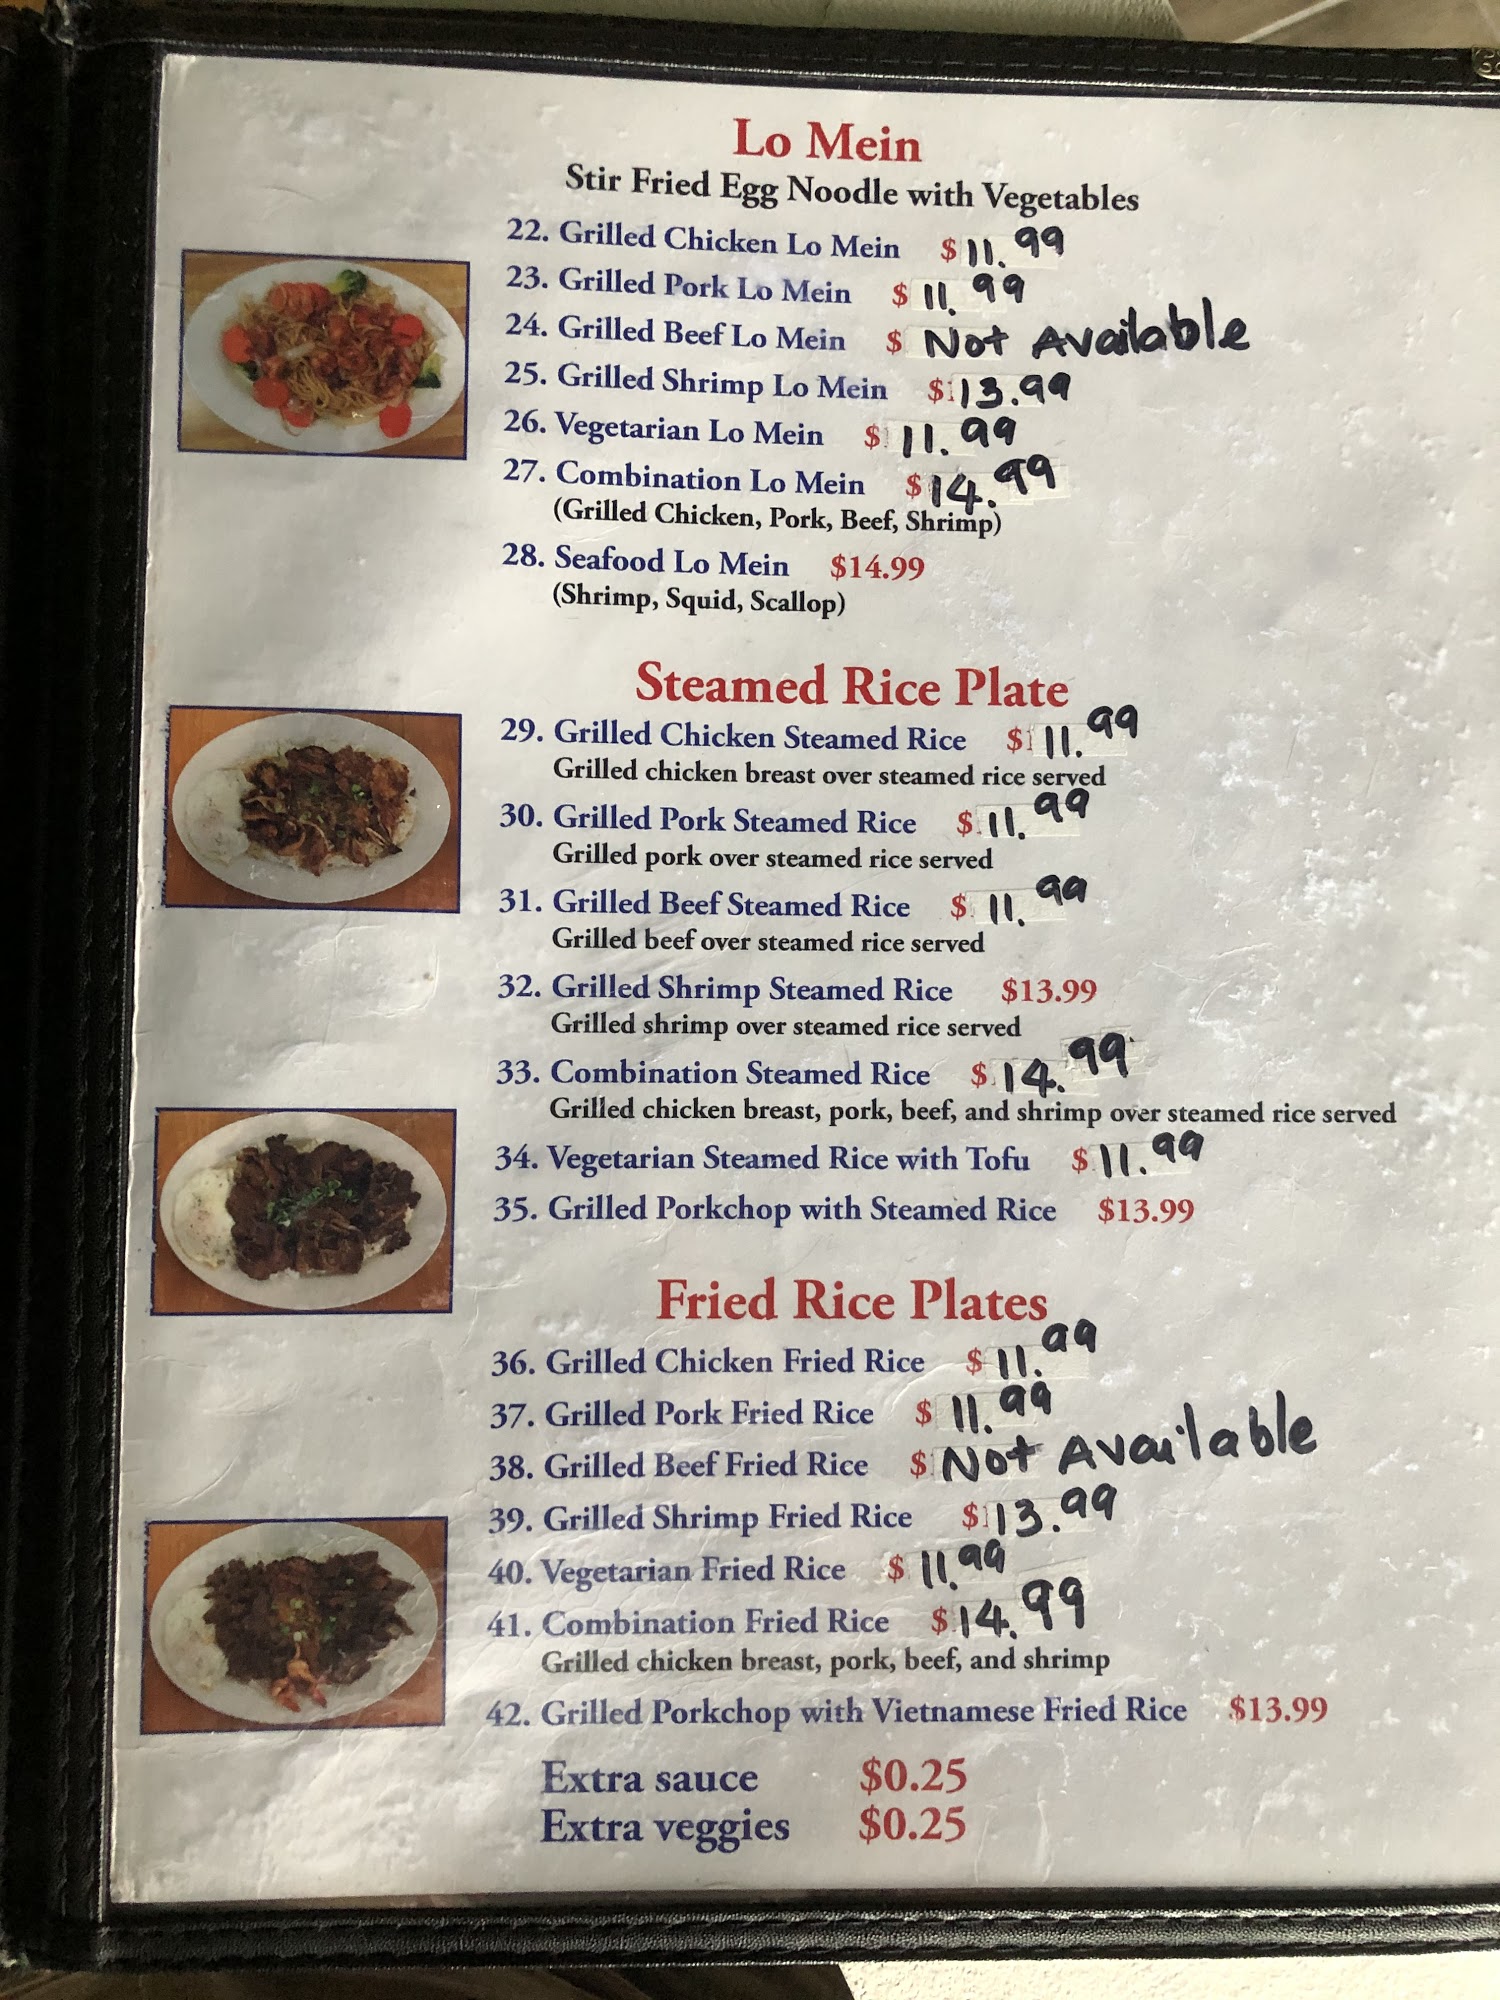 Lo Mein
Stir Fried Egg Noodle with Vegetables
22. Grilled Chicken Lo Mein $11.99
23. Grilled Pork Lo Mein $11.99
24. Grilled Beef Lo Mein $ Not Available
25. Grilled Shrimp Lo Mein $13.99
26. Vegetarian Lo Mein $11.99
27. Combination Lo Mein $14.99
(Grilled Chicken, Pork, Beef, Shrimp)
28. Seafood Lo Mein $14.99
(Shrimp, Squid, Scallop)
Steamed Rice Plate
29. Grilled Chicken Steamed Rice $11.99
Grilled chicken breast over steamed rice served
30. Grilled Pork Steamed Rice $11.99
Grilled pork over steamed rice served
31. Grilled Beef Steamed Rice $11.99
Grilled beef over steamed rice served
32. Grilled Shrimp Steamed Rice $13.99
Grilled shrimp over steamed rice served
33. Combination Steamed Rice $14.99
Grilled chicken breast, pork, beef, and shrimp over steamed rice served
34. Vegetarian Steamed Rice with Tofu $11.99
35. Grilled Porkchop with Steamed Rice $13.99
Fried Rice Plates
36. Grilled Chicken Fried Rice $11.99
37. Grilled Pork Fried Rice $11.99
38. Grilled Beef Fried Rice $ Not Available
39. Grilled Shrimp Fried Rice $13.99
40. Vegetarian Fried Rice $11.99
41. Combination Fried Rice $14.99
Grilled chicken breast, pork, beef, and shrimp
42. Grilled Porkchop with Vietnamese Fried Rice $13.99
Extra sauce $0.25
Extra veggies $0.25